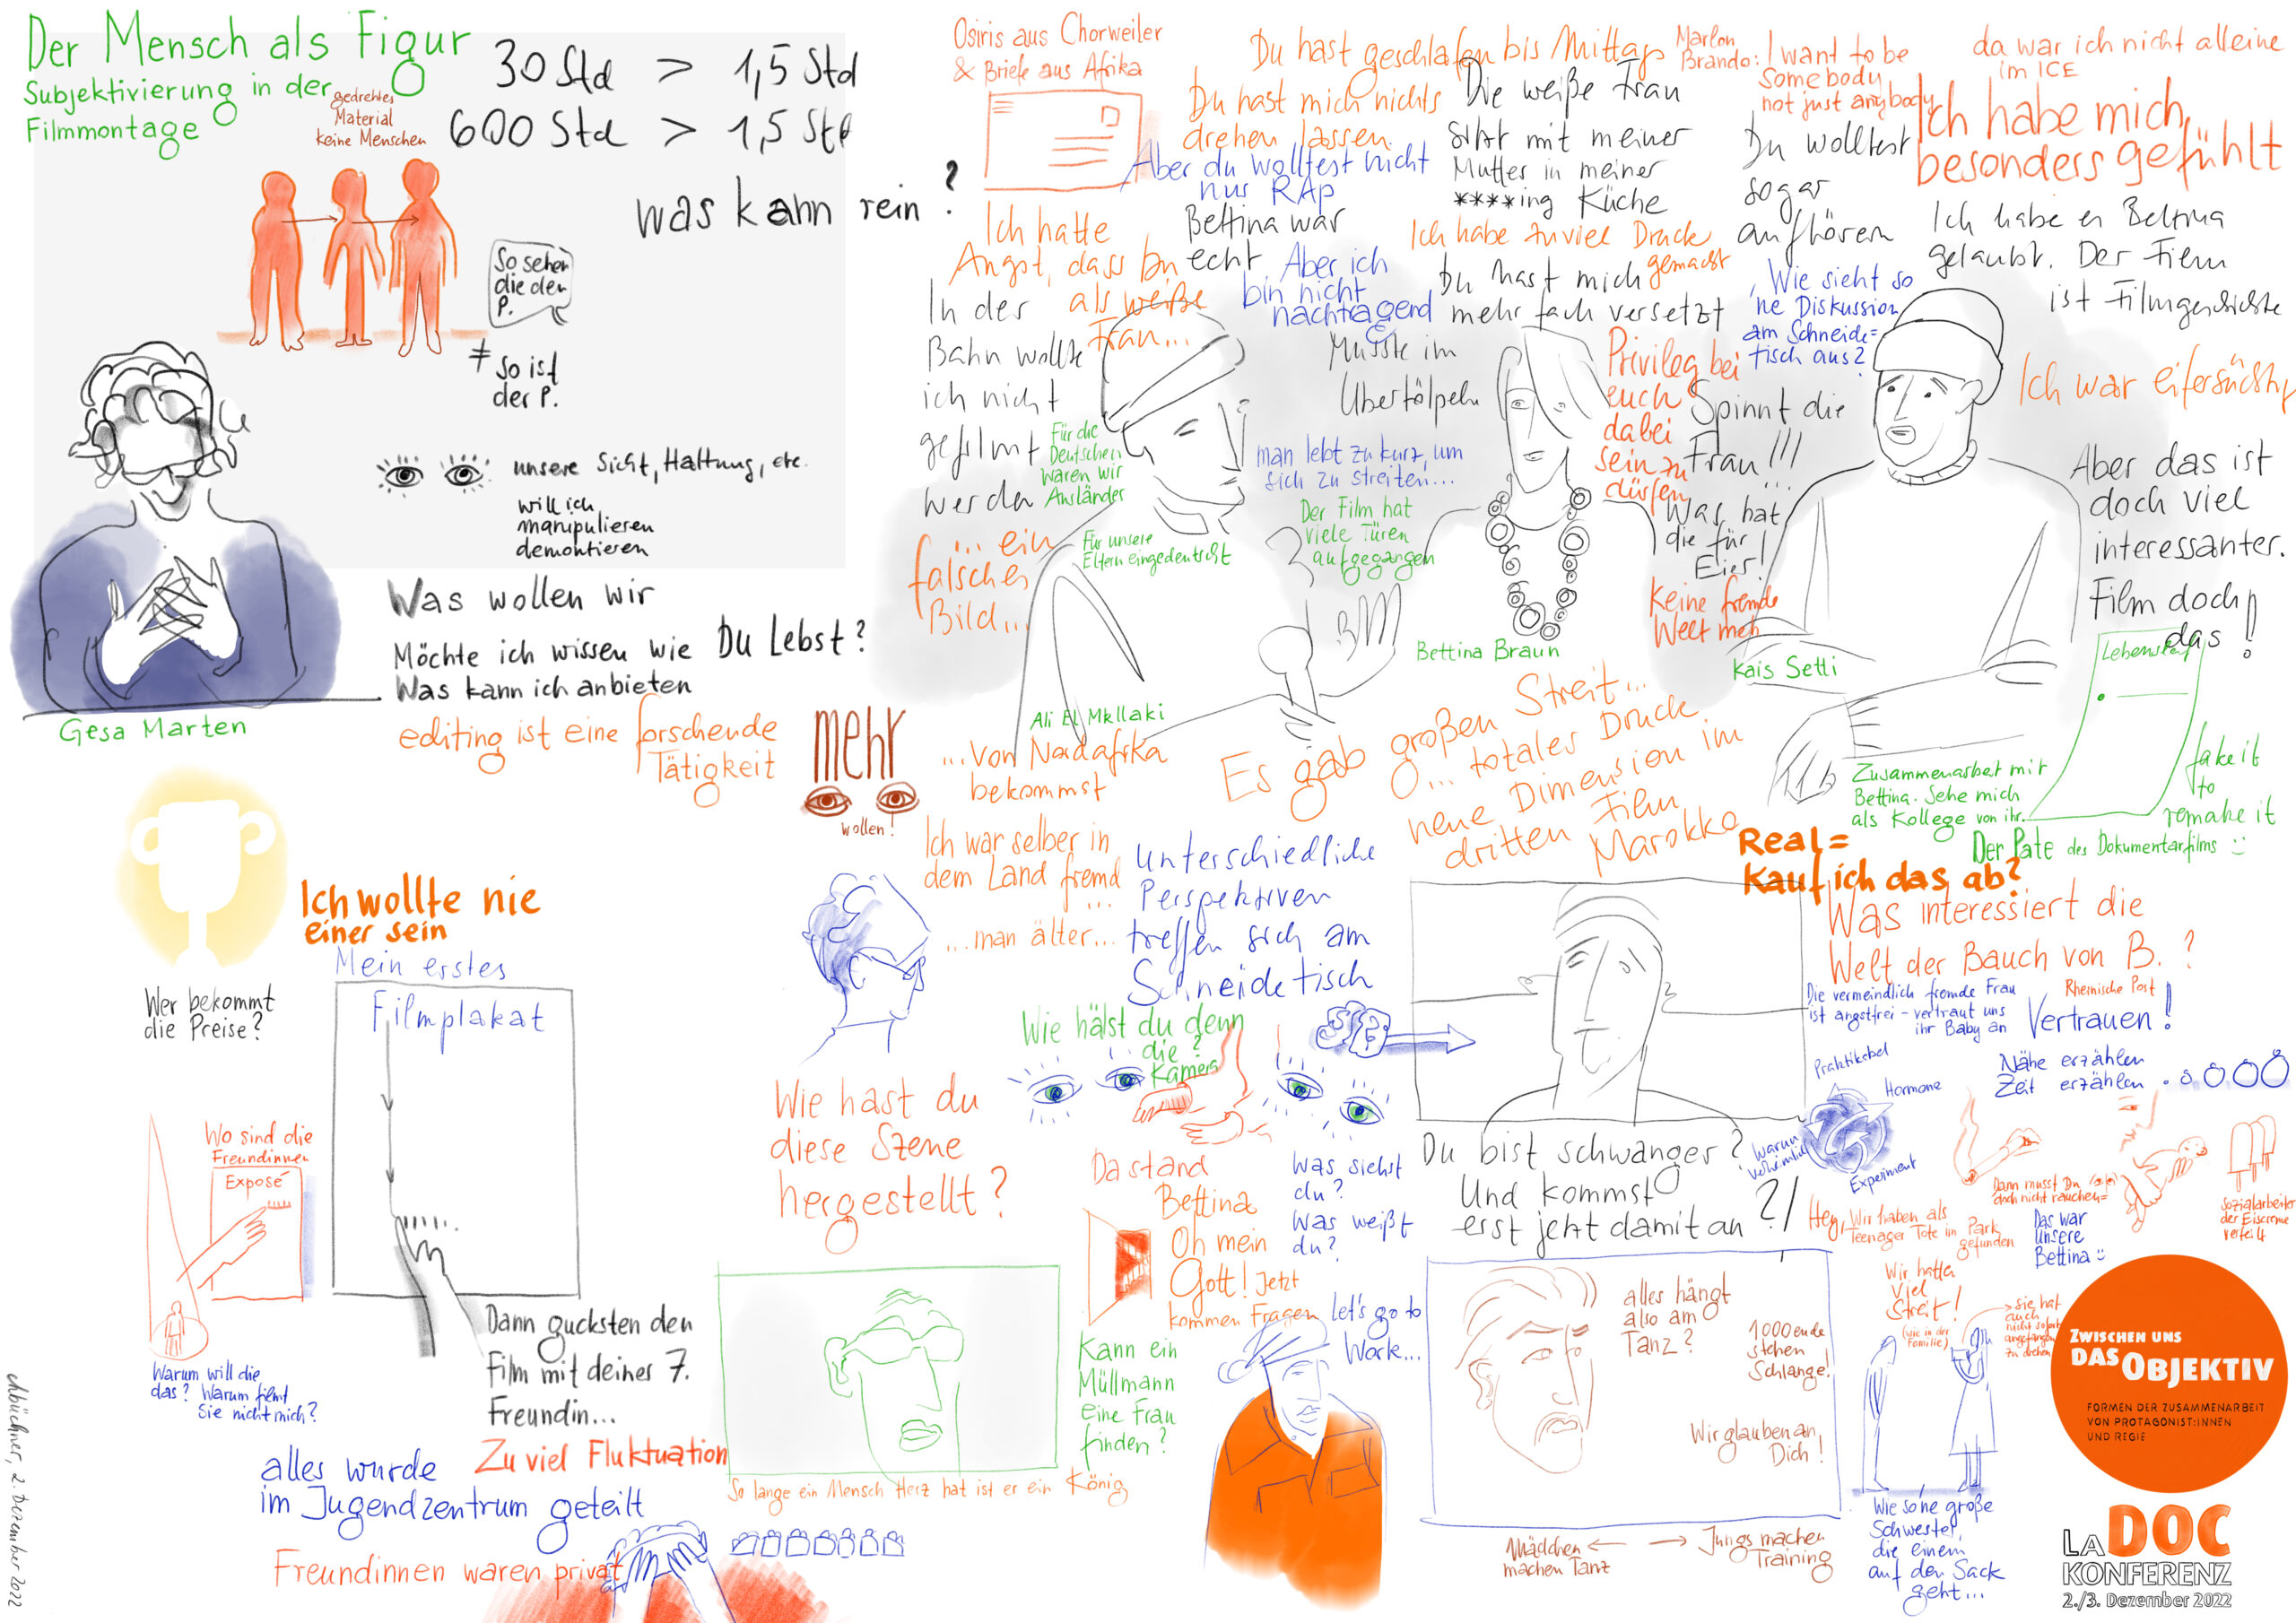 Der Mensch als Figur
Subjektivierung in der
Filmmontage
gedrehtes
Material
keine Menschen
30 Std > 1,5 Std
600 Std > 1,5 Std
was kann rein?
So sehen
die den
P.
≠ So ist
der P.
unsere Sicht, Haltung, etc.
will ich
manipulieren
demontieren
Was wollen wir
Möchte ich wissen wie Du Lebst?
Was kann ich anbieten
editing ist eine forschende
Tätigkeit
Gesa Marten
mehr
wollen!
Osiris aus Chorweiler
& Briefe aus Afrika
Du hast geschlafen bis Mittags
Du hast mich nichts
drehen lassen.
Aber du wolltest nicht
nur RAP
Die weiße Frau
sitzt mit meiner
Mutter in meiner
****ing Küche
Marlon
Brando: I want to be
Somebody
not just anybody
da war ich nicht alleine
im ICE
Ich habe mich
besonders gefühlt
Du wolltest
sogar
aufhören
Ich habe es Bettina
gelaubt. Der Film
ist Filmgeschichte
Ich hatte
Angst, dass Du
als weiße
Frau...
Bettina war
echt
Aber ich
bin nicht
nachtragend
Ich habe zuviel Druck
gemacht
Du hast mich
mehrfach versetzt
Wie sieht so
'ne Diskussion
am Schneide=
tisch aus?
In der
Bahn wollte
ich nicht
gefilmt
werden
Für die
Deutschen
waren wir
Ausländer
Für unsere
Eltern eingedeutscht
... ein
falsches
Bild...
& Musste ihn
Übertölpeln
man lebt zu kurz, um
sich zu streiten...
Der Film hat
viele Türen
aufgegangen
Privileg bei
euch
dabei
sein zu
dürfen
Spinnt die
Frau!!!
Was hat
die für
Eier!
Keine fremde
Welt mehr
Ich war eifersüchtig
Aber das ist
doch viel
interessanter.
Film doch
das!
Ali El Mkllaki
Bettina Braun
Kais Setti
...von Nordafrika
bekommst
Es gab großen Streit...
... totales Druck
neue Dimension im
dritten Film
Marokko
Zusammenarbeit mit
Bettina. Sehe mich
als Kollege von ihr.
fake it
to
remake it
Der Pate des Dokumentarfilms
Ich war selber in
dem Land fremd
...
...man älter...
unterschiedliche
Perspektiven
treffen sich am
Schneidetisch
Real =
Kauf ich das ab?
Was interessiert die
Welt der Bauch von B.?
Rheinische Post
Die vermeindlich fremde Frau
ist angstfrei - vertraut uns
ihr Baby an
Vertrauen!
Nähe erzählen
Zeit erzählen
Hormone
Experiment
Warum
Wer bekommt
die Preise?
Ich wollte nie
einer sein
Mein erstes
Filmplakat
Wo sind die
Freundinnen
Exposé
Warum will die
das? Warum filmt
Sie nicht mich?
Dann gucksten den
Film mit deiner 7.
Freundin...
Zu viel Fluktuation
alles wurde
im Jugendzentrum geteilt
Freundinnen waren privat
Wie hast du
diese Szene
hergestellt?
Wie hälst du denn
die
Kamera?
Da stand
Bettina
Oh mein
Gott! Jetzt
kommen Fragen
Was siehst
du?
Was weißt
du?
Let's go to
Work...
Kann ein
Müllmann
eine Frau
finden?
So lange ein Mensch Herz hat ist er ein König
Du bist schwanger?
Und kommst
erst jetzt damit an?!
alles hängt
also am
Tanz?
1000 ende
stehen
Schlange!
Wir glauben an
Dich!
Mädchen
machen Tanz
Jungs machen
Training
Hey, Wir haben als
Teenager Tote im Park
gefunden
Dann musst Du
doch nicht rauchen
Das war
unsere
Bettina
Sozialarbeiter
der Eiscreme
verteilt
Wir hatten
viel
Streit!
(wie in der
Familie)
sie hat
auch
nicht sofort
angefangen
zu drehen
Wie so ne große
Schwester,
die einem
auf den Sack
geht...
ZWISCHEN UNS
DAS OBJEKTIV
FORMEN DER ZUSAMMENARBEIT
VON PROTAGONIST:INNEN
UND REGIE
LADOC
KONFERENZ
2./3. Dezember 2022
chbüchner, 2. Dezember 2022